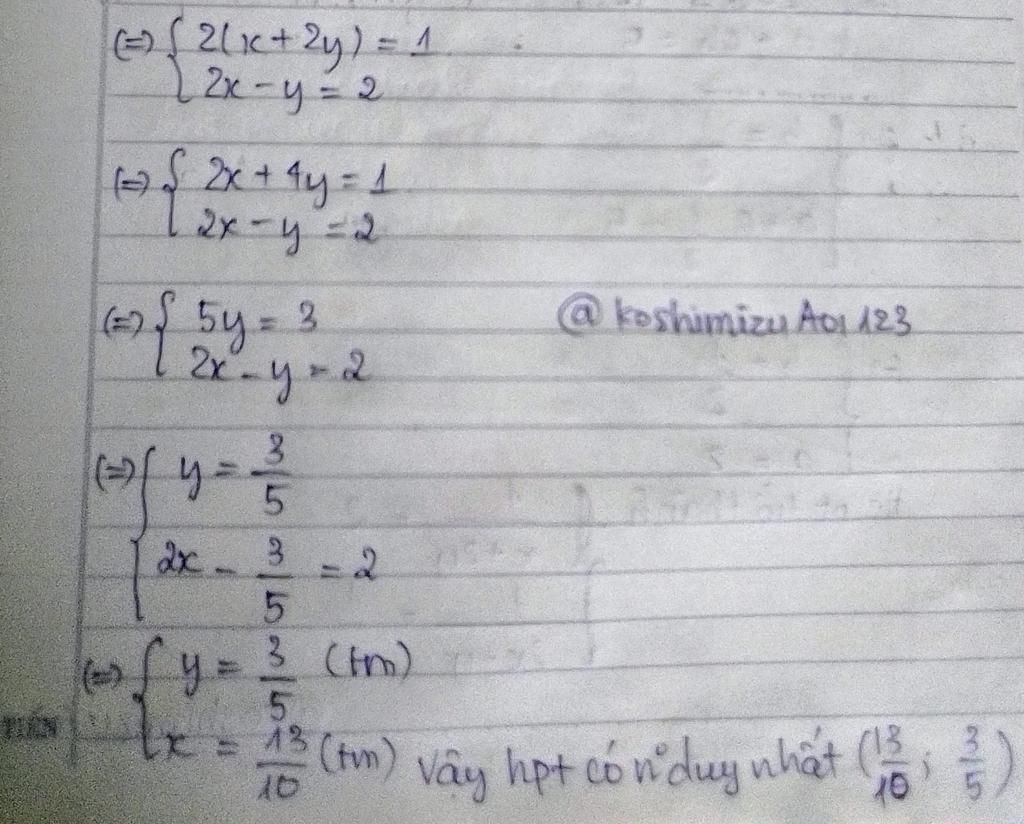 (=) { 2(x + 2y) = 1
2x - y = 2
(=) { 2x + 4y = 1
2x - y = 2
(=) { 5y = 3
2x - y = 2
@ koshimizu Aoi 123
(=) { y = 3/5
2x - 3/5 = 2
(=) { y = 3/5 (tm)
x = 13/10 (tm) vậy hpt có n° duy nhất (13/10; 3/5)